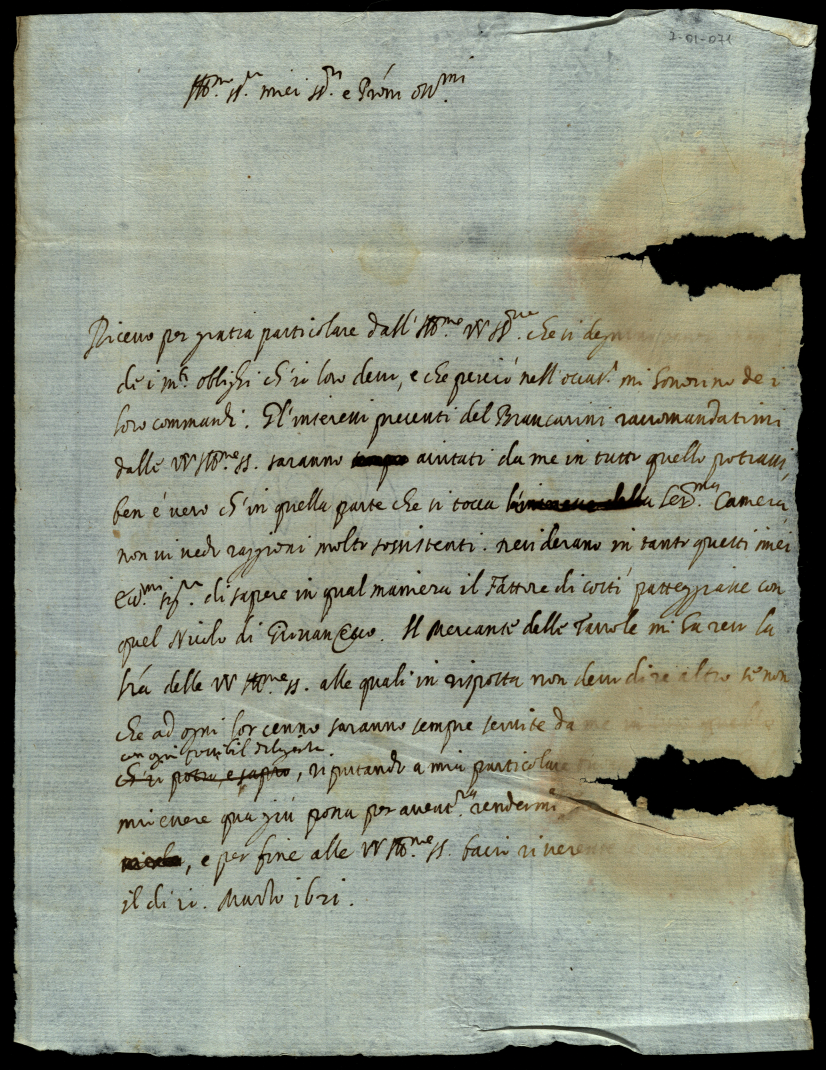 7-01-071
Ill.me SS.re miei SS.ri e Pròni oss.mi
Ricevo per gratia particolare dall' Ill.me VV SS.rie che si
de i m.ti oblighi ch' io loro devo, e che perciò nell' occas.i mi honorino de i
loro commandi. Gl' interessi presenti del Brancarini raccomandatimi
dalle VV Ill.me SS. saranno aiutati da me in tutto quello potrassi,
ben è vero ch' in quella parte che si tocca la Ser.ma Camera,
non vi vedo raggioni molto sossistenti. desiderano in tanto questi miei
Ecc.mi Sig.ri di sapere in qual maniera il Fattore di costì patteggiasse con
quel Nicolo di Giovan Cecco. Il Mercante delle Tavole mi ha reso la
l.ra delle VV Ill.me SS. alle quali in risposta non devo dire altro se non
che ad ogni lor cenno saranno sempre servite da me
con ogni possibil diligenza
ch' io potrò, e saprò, riputando a mia particolare
mio essere qua giù possa per avent.ra rendermi
, e per fine alle VV Ill.me SS. bacio riverente
il di 20. Marzo 1621.